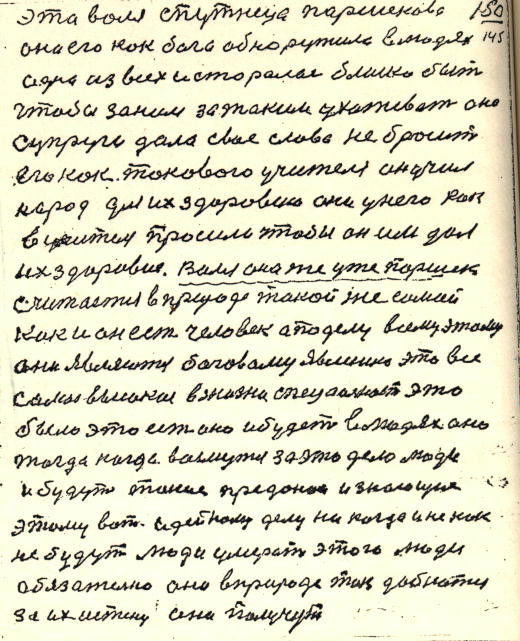 эта воля спутнеца паршекова 150
она его кок бога обнорутила в людях 145
одна из всех и сторалас близко быт
чтобы за ним за таким ухаживат она
супруги дала свае слова не бросит
его кок токового учителя он учил
народ для их здоровия они у него кок
просили чтобы он им дал
их здоровия. Валя она же уже паршек
считается в природе такой же самай
как и он ест человек а по делу всему этому
она являится боговому явлению это все
самое высокае в жизни специалност это
было это ест оно и будет в людях оно
тогда когда возмутся за это дело люди
и будут такие преданаи и знающие
этому вот идейному делу ни когда и не кок
не будут люди умерат этого люди
обязателно они в природе так добютя
за их истену они получут